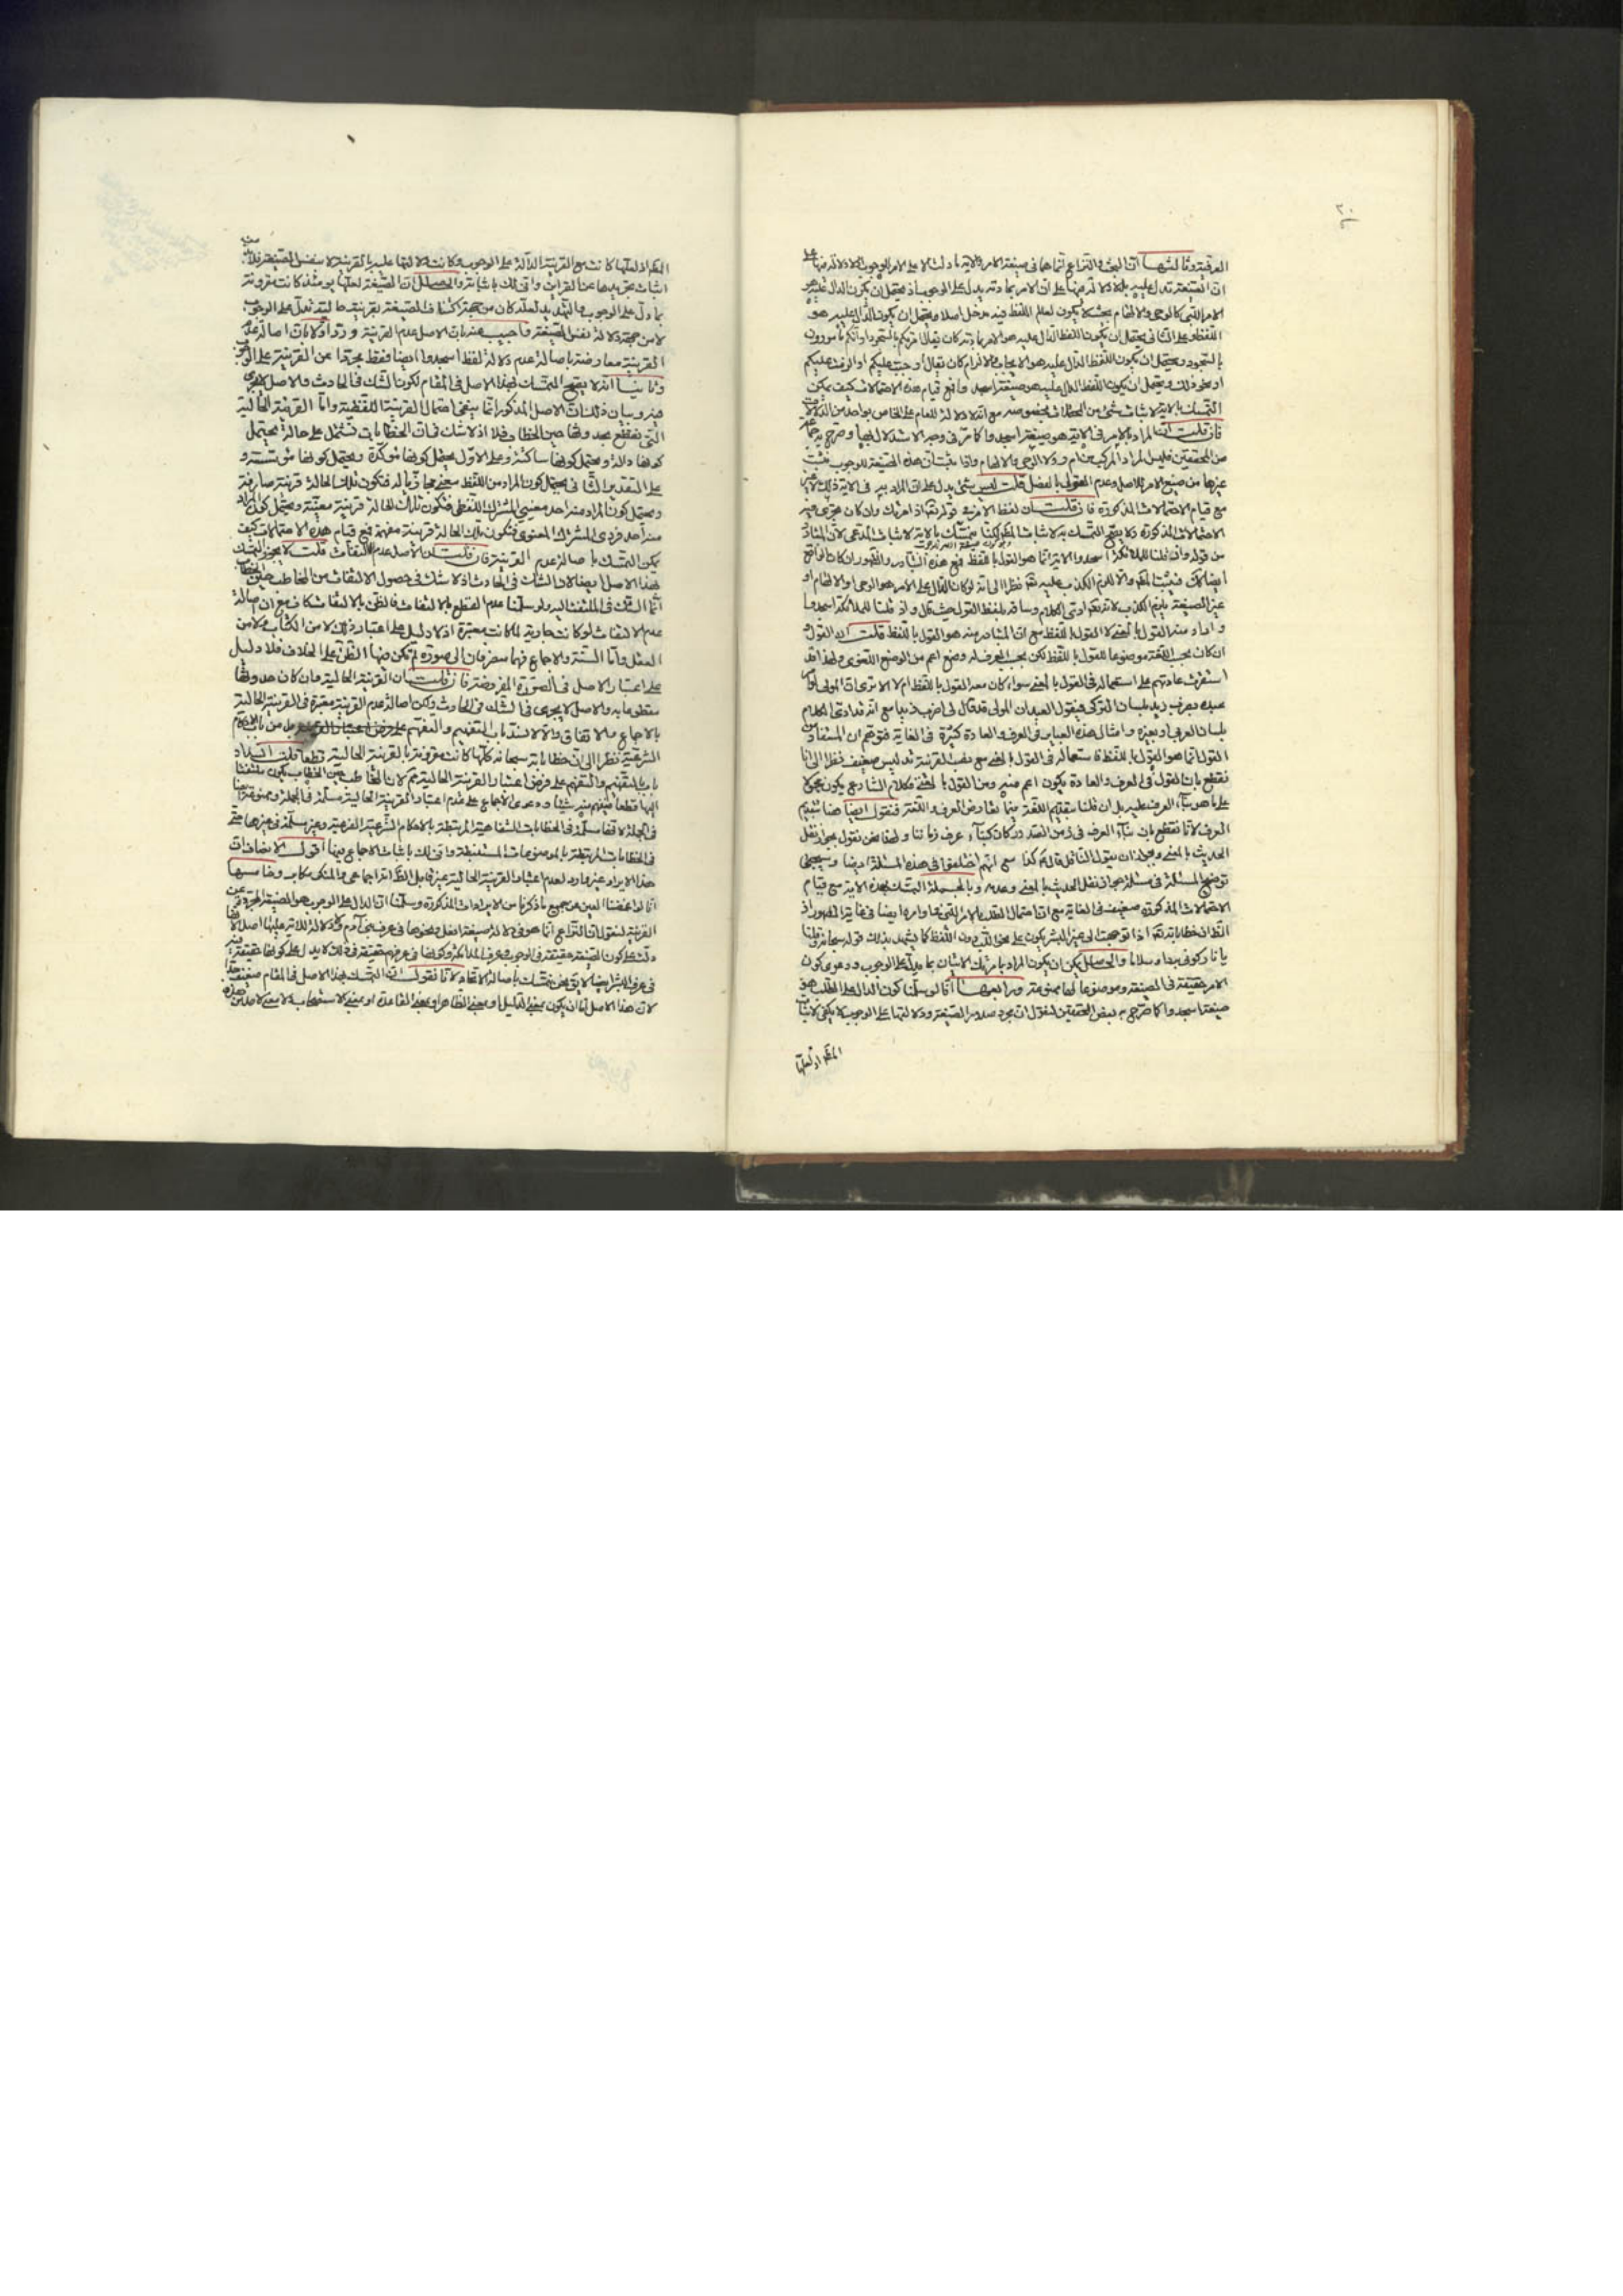 ٣٠
العرفية وثالثها ان البحث والنزاع انما هما في صيغة الامر والاية ما دلت الا على الامر الوجوب ولا دلالة فيها على
ان الصيغة تدل عليه بلا دلالة فيها على ان الامر بمادته يدل على الوجوب اذ يحتمل ان يكون الدال عليه هو
الامر النفسي كالوحي والالهام بحيث لا يكون لعالم اللفظ فيه مدخل اصلا ويحتمل ان يكون الدال عليه هو
اللفظ وعلى الثاني يحتمل ان يكون اللفظ الدال عليه هو الامر بمادته كان يقال امرتكم بالسجود او انكم مأمورون
بالسجود ويحتمل ان يكون اللفظ الدال عليه هو الايجاب والالزام كان يقال اوجبت عليكم او الزمت عليكم
او نحو ذلك ويحتمل ان يكون اللفظ الدال عليه هو صيغة اسجدوا فمع قيام هذه الاحتمالات كيف يمكن
التمسك بالاية لاثبات شئ من المحتملات بخصوصه مع انه لا دلالة للعام على الخاص بواحد من الدلالات
فان قلت ان المراد بالامر في الاية هو صيغة اسجدوا كما مر في وجه الاستدلال بها وصرح به جماعة
من المحققين فليس المراد المركب من ام ر ولا الوحي والالهام واذا ثبت ان هذه الصيغة للوجوب يثبت
غيرها من صيغ الامر للاصل وعدم القول بالفصل قلت ليس شئ يدل على ان المراد به في الاية ذلك
مع قيام الاحتمالات المذكورة فان قلت ان لفظ الامر في قوله تعالى اذ امرتك وان كان يجري فيه
الاحتمالات المذكورة ولا يصح التمسك به لاثبات المط لكنا نتمسك بالاية لاثبات المدعى لان المتبادر
من قوله واذ قلنا للملائكة اسجدوا الاية انما هو القول باللفظ فمع هذا التبادر والظهور ان كان الواقع
ايضا ذلك فيثبت المط والا للزم الكذب عليه تعالى نظرا الى انه لو كان الدال على الامر هو الوحي او الالهام او
غير الصيغة يلزم الكذب لانه تعالى ادى الكلام وساقه بلفظ القول حيث قال واذ قلنا للملائكة اسجدوا
واراد منه القول بالمعنى لا القول باللفظ مع ان المتبادر منه هو القول باللفظ قلت ان القول و
ان كان بحسب اللغة موضوعا للقول باللفظ لكن بحسب العرف له وضع اعم من الوضع اللغوي ولهذا قد
استقرت عادتهم على استعماله في القول بالمعنى سواء كان معه القول باللفظ ام لا الا ترى ان المولى لو امر
عبده بضرب زيد بلسان التركي فيقول العبد ان المولى قد قال لي اضرب زيدا مع انه قد ادى الكلام
بلسان العربي او بغيره وامثال هذه العبارة في العرف والعادة كثيرة في الغاية فتوهم ان المستفاد من
القول انما هو القول باللفظ فاستعماله في القول بالمعنى مع نصب القرينة قد ليس ضعيف نظرا الى انا
نقطع بان القول في العرف والعادة يكون اعم منه ومن القول بالمعنى فكلام الشارع يكون محمولا
على ما هو بناء العرف عليه بل ان قلنا بتقديم اللغة فيما تعارض العرف واللغة فنقول ايضا هنا بتقديم
العرف لانا نقطع بان بناء العرف في زمن الصدور كان كبناء عرف زماننا ولهذا نحن نقول بجواز نقل
الحديث بالمعنى وبجواز ان يقول الناقل قال كذا مع انهم اختلفوا في هذه المسئلة ايضا وسيجئ
توضيح المسئلة في مسئلة جواز نقل الحديث بالمعنى وعدمه وبالجملة التمسك بهذه الاية مع قيام
الاحتمالات المذكورة ضعيف في الغاية مع ان احتمال الطلب بالامر النفسي واوامره ايضا في غاية الظهور اذ
الظ ان خطاباته تعالى اذا توجهت الى غير البشر يكون على نحو اللب دون اللفظ كما يشهد بذلك قوله سبحانه وقلنا
يا نار كوني بردا وسلاما والحاصل يمكن ان يكون المراد بامرتك الاتيان بما يدل على الوجوب ودعوى كون
الامر حقيقة في الصيغة وموضوعا لها ممنوعة ورابعها انا لو سلمنا كون الدال على الطلب هو
صيغة اسجدوا كما صرح به بعض المحققين لنقول ان مجرد صدور الصيغة ودلالتها على الوجوب لا يكفي لاثبات
المط اذ لعلها
المط اذ لعلها كانت مع القرينة الدالة على الوجوب وكانت دلالتها عليه بالقرينة لا بنفس الصيغة فلابد
اثبات تجريدها عن القرائن وانى لك باثباته والحاصل ان الصيغة لعلها يومئذ كانت مقرونة
بما دل على الوجوب والتهديد لعله كان من جهة اكتناف الصيغة بقرينة حالية تدل على الوجوب
لا من جهة دلالة نفس الصيغة واجيب عنه بان الاصل عدم القرينة ورد اولا بان اصالة عدم
القرينة معارضة باصالة عدم دلالة لفظ اسجدوا ايضا فقط مجردا عن القرينة على الوجوب
وثانيا انه لا يصح التمسك بهذا الاصل في المقام لكون الشك في الحادث والاصل لا يجري
فيه وبيان ذلك ان الاصل المذكور انما ينفي احتمال القرينة اللفظية واما القرينة الحالية
التي نقطع بحدوثها حين الخطاب فلا اذ لا شك في ان الخطابات تشتمل على حالة يحتمل
كونها دالة ويحتمل كونها ساكتة وعلى الاول يحتمل كونها مؤكدة ويحتمل كونها مؤسسة و
على التقدير الثاني يحتمل كون المراد من اللفظ معنى مجازيا له فتكون تلك الحالة قرينة صارفة
ويحتمل كون المراد منه احد معنيي المشترك اللفظي فتكون تلك الحالة قرينة معينة ويحتمل كون المراد
منه احد فردي المشترك المعنوي فتكون تلك الحالة قرينة مفهمة فمع قيام هذه الاحتمالات كيف
يمكن التمسك باصالة عدم القرينة فان قلت ان الاصل عدم الالتفات قلت لا يجوز التمسك
بهذا الاصل ايضا لان الشك في الحادث اذ لا شك في حصول الالتفات من المخاطب حين الخطاب
انما الشك في الملتفت اليه ولو سلمنا عدم القطع بالالتفات فالظن بالالتفات كاف مع ان اصالة
عدم الالتفات لو كانت جارية لما كانت معتبرة اذ لا دليل على اعتبار ذلك لا من الكتاب ولا من
العقل واما السنة والاجماع فهما منصرفان الى صورة لم يكن فيها الظن على الخلاف فلا دليل
على اعتبار الاصل في الصورة المفروضة فان قلت ان القرينة الحالية وان كان حدوثها
مقطوعا به والاصل لا يجري في الشك في الحادث ولكن اصالة عدم القرينة معتبرة في القرينة الحالية
بالاجماع والاتفاق والا لانسد باب التفهيم والتفهم
الشرعية نظرا الى ان خطاباته سبحانه كلها كانت مقرونة بالقرينة الحالية قطعا قلت انسداد
باب التفهيم والتفهم على فرض اعتبار القرينة الحالية لان المخاطب حين الخطاب يكون ملتفتا
اليها قطعا فيفهم منه شيئا ودعوى الاجماع على عدم اعتبار القرينة الحالية مسلمة في الجملة وممنوعة ايضا
في الجملة لانها مسلمة في الخطابات الشفاهية المرتبطة بالاحكام الشرعية الفرعية وغير مسلمة في غيرها حتى
في الخطابات المرتبطة بالموضوعات المستنبطة وانى لك باثبات الاجماع فيها اقول الانصاف ان
هذا الايراد غير وارد لعدم اعتبار القرينة الحالية الظ انه اجماعي والمنكر مكابر وخامسها
انا لو اغمضنا العين عن جميع ما ذكرنا من الايرادات المذكورة وسلمنا ان الدال على الوجوب هو الصيغة المجردة عن
القرينة لنقول ان النزاع انما هو في دلالة صيغة افعل ونحوها في عرف بني آدم ولا دلالة للاية عليها اصلا لانها
دلت على كون الصيغة حقيقة في الوجوب في عرف الملائكة وكونها في عرفهم حقيقة في ذلك لا يدل على كونها حقيقة فيه
في عرف البشر ايضا لا يق نحن نتمسك باصالة الاتحاد لانا نقول ان التمسك بهذا الاصل في المقام ضعيف جدا
لان هذا الاصل اما ان يكون بمعنى الدليل او بمعنى الظاهر او بمعنى القاعدة او بمعنى الاستصحاب